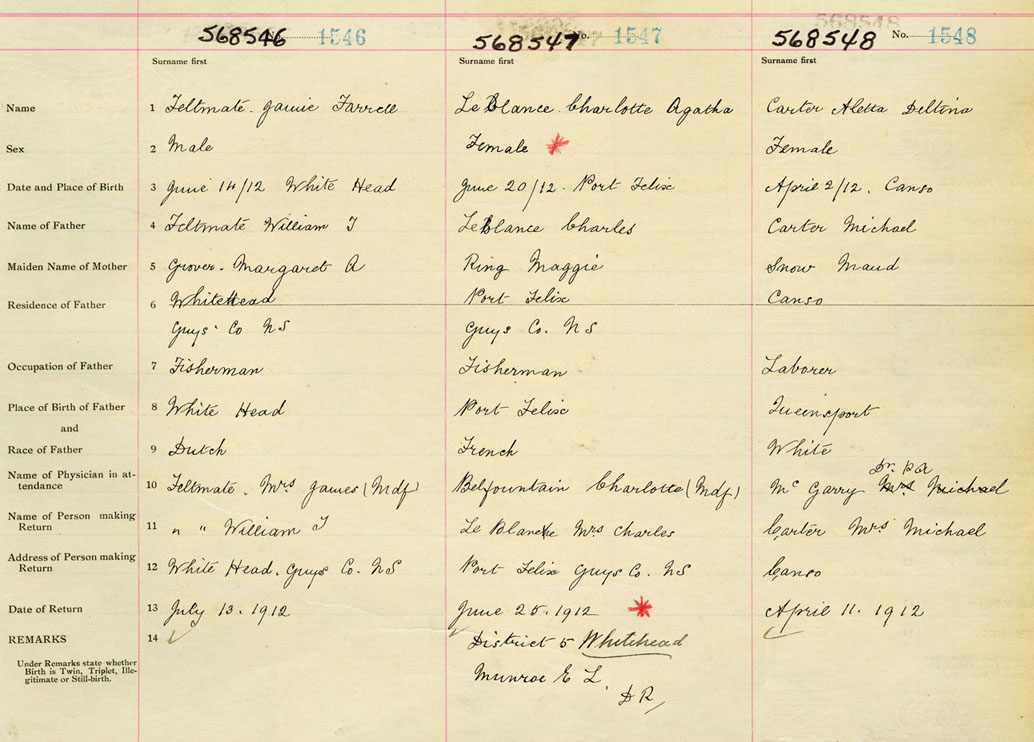 568546 1546 568547 No. 1547 568548 No. 1548
Surname first Surname first Surname first
Name 1 Feltmate. Jamie Farrell LeBlance. Charlotte Agatha Carter Aletta Deltina
Sex 2 Male Female * Female
Date and Place of Birth 3 June 14/12 White Head June 20/12. Port Felix April 2/12. Canso
Name of Father 4 Feltmate William T LeBlance Charles Carter Michael
Maiden Name of Mother 5 Grover. Margaret A Ring Maggie Snow Maud
Residence of Father 6 WhiteHead Port Felix Canso
Guys' Co NS Guys Co. NS
Occupation of Father 7 Fisherman Fisherman Laborer
Place of Birth of Father 8 White Head Port Felix Queensport
and
Race of Father 9 Dutch French White
Name of Physician in at-
tendance 10 Feltmate. Mrs James (Mdf) Belfountain Charlotte (Mdf) Mc Garry Mrs Michael
Dr.
Name of Person making
Return 11 " " William T Le Blance Mrs Charles Carter Mrs Michael
Address of Person making
Return 12 White Head. Guys Co. NS Port Felix Guys Co. NS Canso
Date of Return 13 July 13. 1912 June 25. 1912 * April 11. 1912
REMARKS 14 District 5 Whitehead
Under Remarks state whether
Birth is Twin, Triplet, Ille-
gitimate or Still-birth.
Munroe E L.
D R